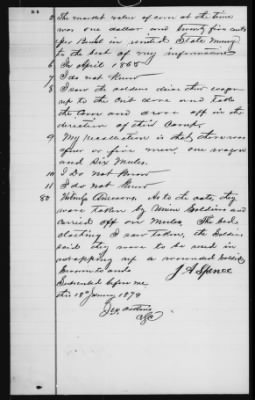 5 The market value of corn at the time
was one dollar and twenty five cents
per Bush in United States Money
to the best of my information
6 In April 1865
7 I do not know
8 I saw the soldiers drive their wagon
up to the Crib door and take
the Corn and drove off in the
direction of their Camp
9 My recollection is that there was
four or five men, one wagon
and Six Mules.
10 I Do not know
11 I do not know
80 As to the oats, they
were taken by Union Soldiers and
carried off on Mules. The bed
clothing I saw taken, the Soldiers
said they were to be used in
wrapping up a wounded soldier
J A Spence
Subscribed before me
this 18th January 1878